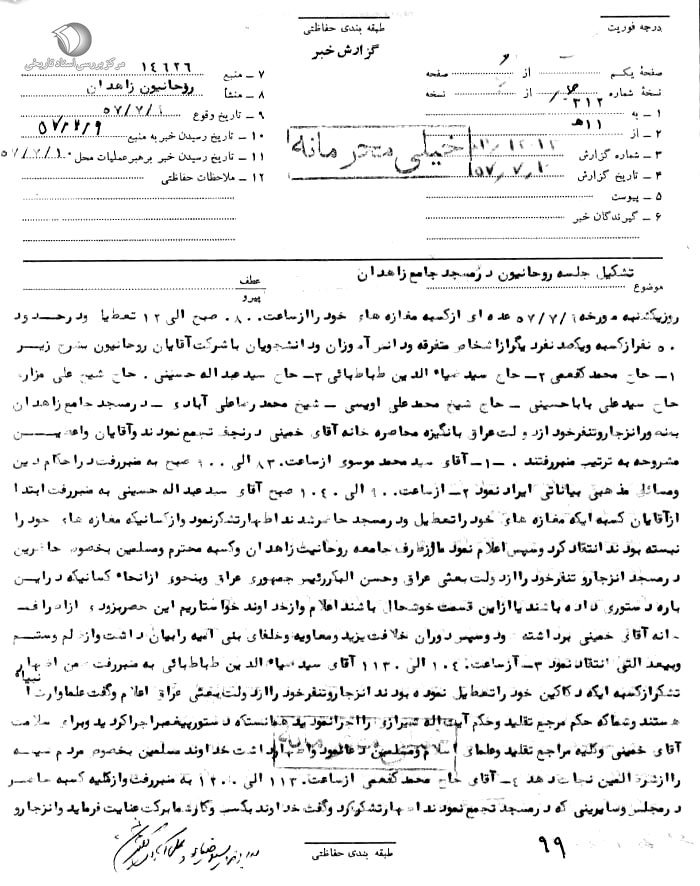 درجه فوریت
طبقه بندی حفاظتی
گزارش خبر
مرکز بررسی اسناد تاریخی
صفحهٔ یکم از صفحه
نسخهٔ شماره از نسخه
۳۱۲
۱ ـ به
۲ ـ از ۱۱ هـ
۳ ـ شماره گزارش
۴ ـ تاریخ گزارش ۵۷/۷/۱۰
۵ ـ پیوست
۶ ـ گیرندگان خبر
خیلی محرمانه
۷ ـ منبع ۱۴۶۲۶
۸ ـ منشأ روحانیون زاهدان
۹ ـ تاریخ وقوع ۵۷/۷/۹
۱۰ ـ تاریخ رسیدن خبر به منبع ۵۷/۷/۹
۱۱ ـ تاریخ رسیدن خبر برهبر عملیات محل ۵۷/۷/۱۰
۱۲ ـ ملاحظات حفاظتی
موضوع تشکیل جلسه روحانیون درمسجد جامع زاهدان
عطف
پیرو
روزیکشنبه مورخه ۵۷/۷/۹ عده ای ازکسبه مغازه های خود راازساعت ۰۸۰۰ صبح الی ۱۲ تعطیل ودرحدود
۵۰ نفرازکسبه ویکصد نفردیگرازاشخاص متفرقه ودانش آموزان ودانشجویان با شرکت آقایان روحانیون بشرح زیر
۱ـ حاج محمد کفعمی ۲ـ حاج سید ضیاء الدین طباطبائی ۳ـ حاج سید عبداله حسینی . حاج شیخ علی مزاری
حاج سیدعلی باباحسینی ـ حاج شیخ محمدعلی اویسی ـ شیخ محمد رضاعلی آبادی ـ درمسجد جامع زاهدان
بمنظورانزجاروتنفرخود ازدولت عراق بانگیزه محاصره خانه آقای خمینی درنجف تجمع نمودند وآقایان واعظین
مشروحه به ترتیب منبررفتند . ـ۱ـ آقای سید محمد موسوی ازساعت ۸۳۰ الی ۹۰۰ صبح به منبررفت دراحکام دین
ومسائل مذهبی بیاناتی ایراد نمود ۲ـ ازساعت ۹۰۰ الی ۱۰۴۰ صبح آقای سید عبداله حسینی به منبررفت ابتدا
ازآقایان کسبه ایکه مغازه های خود را تعطیل ودرمسجد حاضرشدند اظهارتشکرنمود وازکسانیکه مغازه های خود را
نبسته بودند انتقاد کرد وسپس اعلام نمود ماازطرف جامعه روحانیت زاهدان وکسبه محترم ومسلمین بخصوص حاضرین
درمسجد انزجارو تنفرخود راازدولت بعثی عراق وحسن البکررئیس جمهوری عراق وبنحوی ازانحاء کسانیکه دراین
باره دستوری داده باشند یاازاین قسمت خوشحال باشند اعلام وازخداوند خواستاریم این حصربزودی ازاطراف
خانه آقای خمینی برداشته شود وسپس دوران خلافت یزید ومعاویه وخلفای بنی امیه رابیان داشت وازظلم وستم
وبیعدالتی انتقاد نمود ۳ـ ازساعت ۱۰۴۰ الی ۱۱۳۰ آقای سید ضیاء الدین طباطبائی به منبررفت ضمن اظهار
تشکرازکسبه ایکه دکاکین خود راتعطیل نموده بودند انزجاروتنفرخود راازدولت بعثی عراق اعلام وگفت علماوارث انبیاء
هستند وشماکه حکم مرجع تقلید وحکم آیت اله شیرازی رااجرانمودید همانستکه دستورپیغمبراجراکردید وبرای سلامت
آقای خمینی وکلیه مراجع تقلید وعلمای اسلام ومسلمین دعانمود واظهارداشت خداوند مسلمین بخصوص مردم مسلمه
راازشرظالمین نجات دهد ۴ـ آقای حاج محمد کفعمی ازساعت ۱۱۳۰ الی ۱۲۰۰ به منبررفت وازکلیه کسبه حاضر
درمجلس وسایرینی که درمسجد تجمع نمودند اظهارتشکرکرد وگفت خداوند بکسب وکارشمابرکت عنایت فرماید وانزجارو
طبقه بندی حفاظتی
۹۹